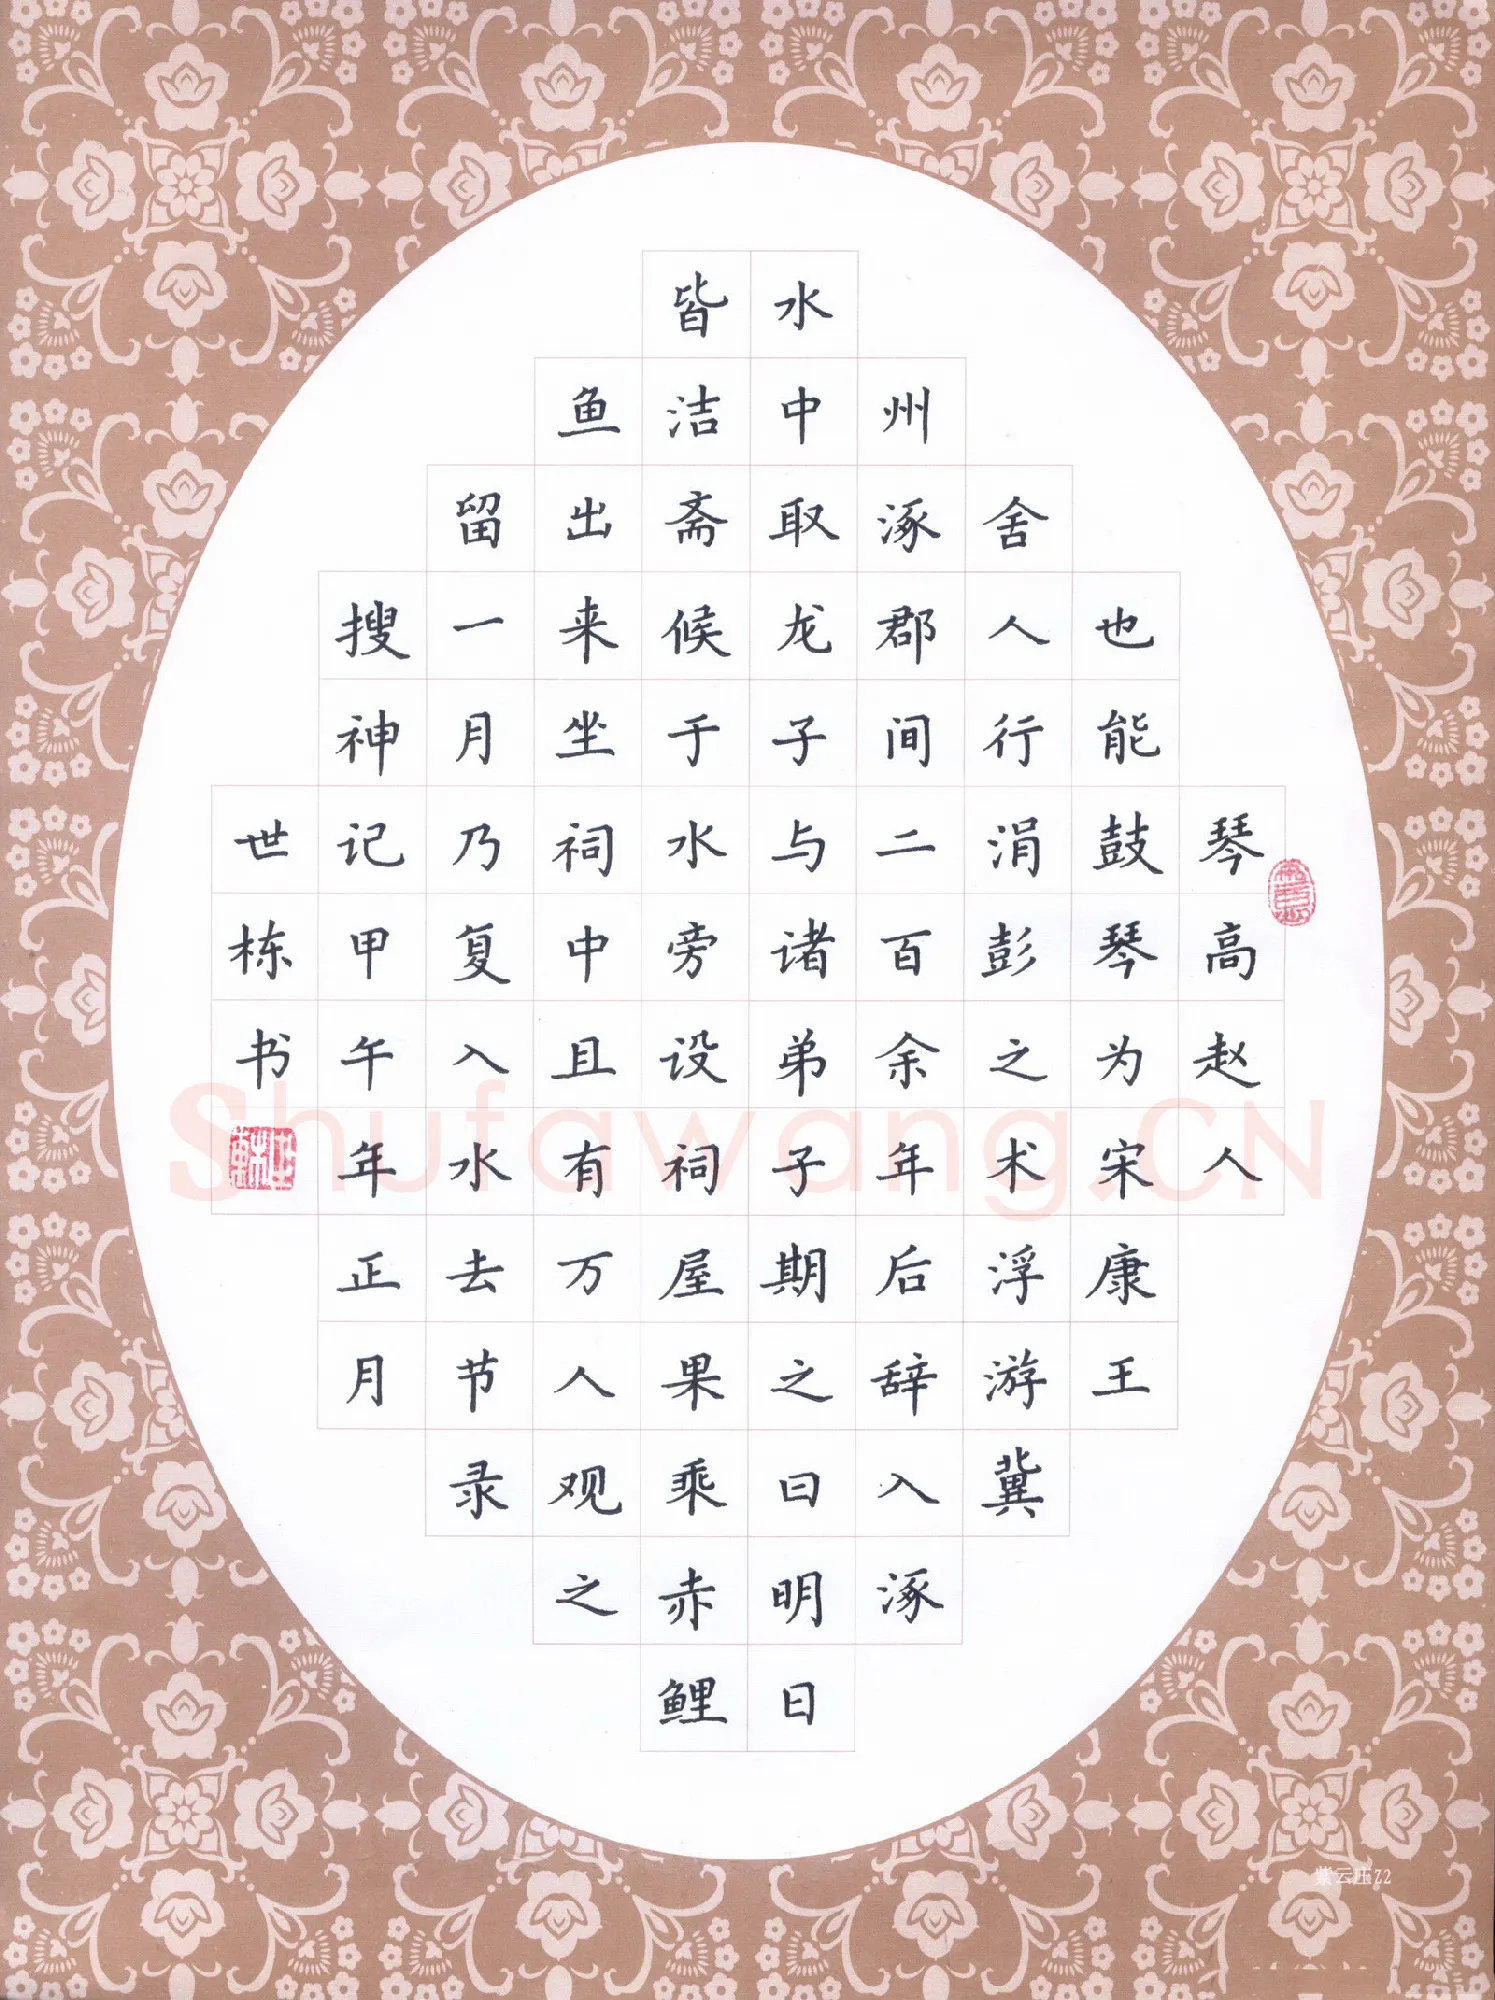 琴高赵人
也能鼓琴为宋康王
舍人行涓彭之术浮游冀
州涿郡间二百余年后辞入涿
水中取龙子与诸弟子期之曰明日
皆洁斋候于水旁设祠屋果乘赤鲤
鱼出来坐祠中且有万人观之
留一月乃复入水去节录
搜神记甲午年正月
世栋书
Shufawang.CN
紫云庄Z2